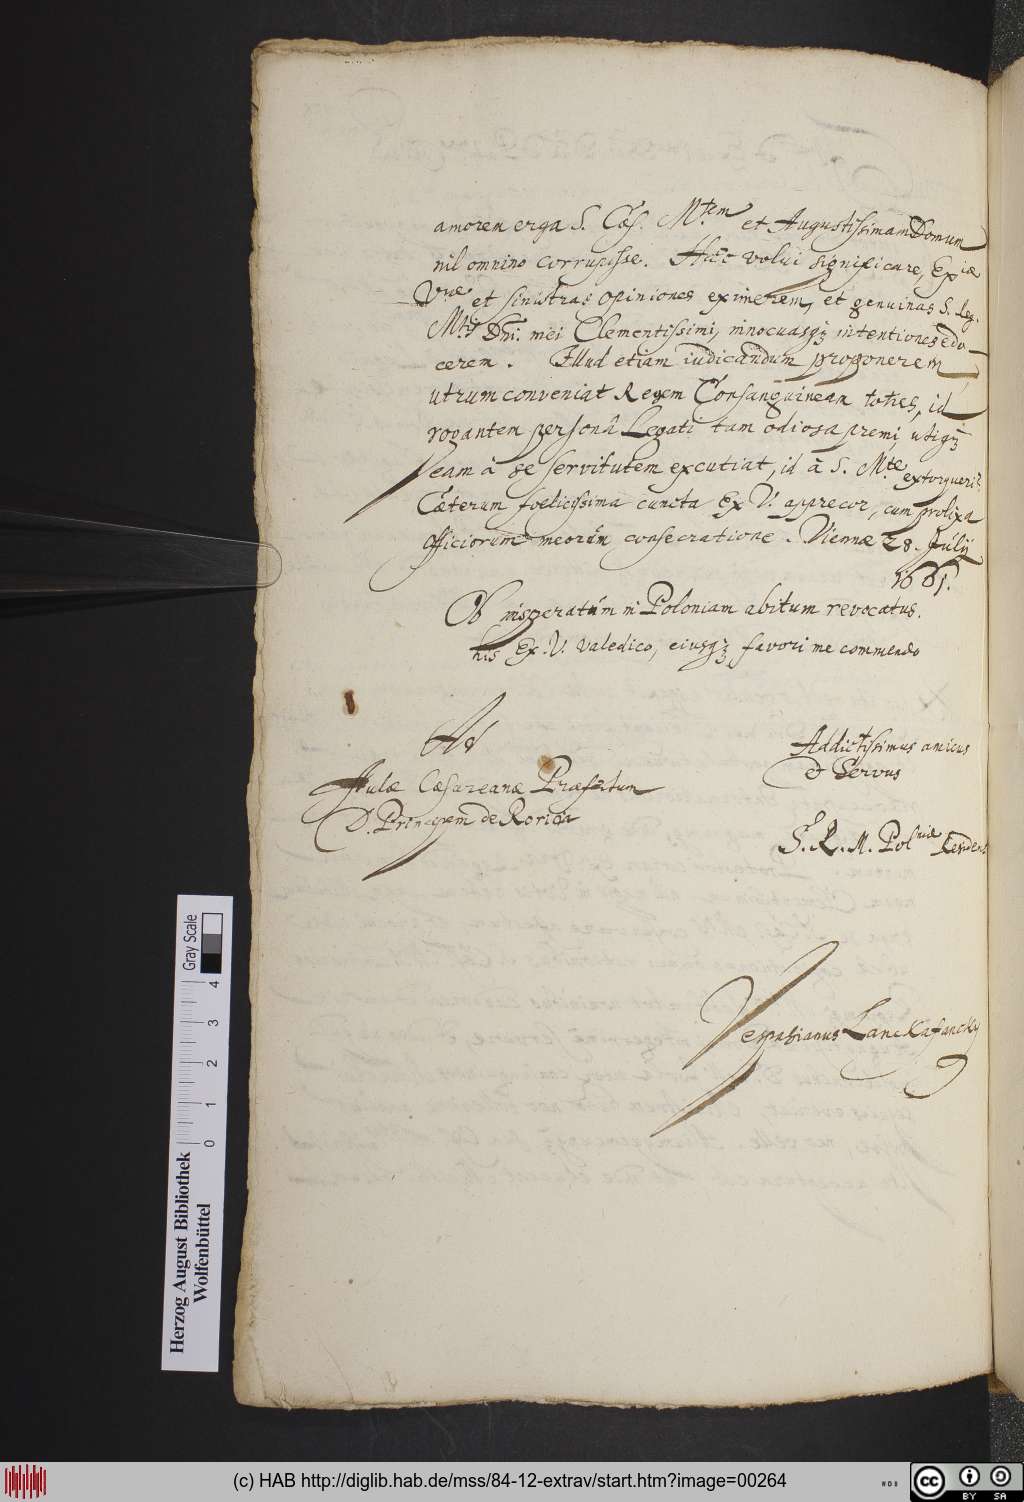 amorem erga S. Cæs. Mtem et Augustissimam Domum
nil omnino corrupisse. Hæc volui significare, Exiæ
Vræ et sinistras opiniones eximerem, et genuinas S. Reg.
Mtis Dni. mei Clementissimi, innocuasqꝫ intentiones edo-
cerem. Illud etiam iudicandum proponerem
utrum conveniat Regem Consanguineum toties, id
rogantem persona Legati tam odiosa premi, utiqꝫ
eam à se servitutem excutiat, id à S. Mte extorqueri
Cæterum foelicissima cuncta Ex. V. apprecor, cum prolixa
officiorum meorum consecratione. Viennæ 28. July
1661.
Ob insperatum in Poloniam abitum revocatus.
his Ex. V. valedico, eiusqꝫ favori me commendo
Ad
Aulæ Cæsareanæ Præfectum
D. Principem de Porcia
Addictissimus amicus
et Servus
S. R. M. Polniæ Residens
Vespasianus Lanckafancky
Gray Scale
0 1 2 3 4
Herzog August Bibliothek
Wolfenbüttel
(c) HAB http://diglib.hab.de/mss/84-12-extrav/start.htm?image=00264
WDB
cc BY SA